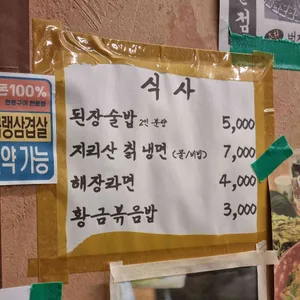 식사
된장술밥 2인분량 5,000
지리산 칡냉면 (물/비빔) 7,000
해장라면 4,000
황금볶음밥 3,000
100%
삼겹살
약 가능